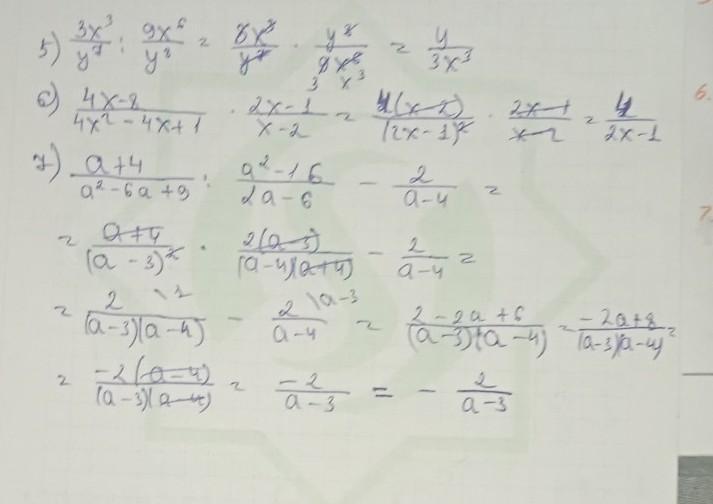 5) 3x³/y⁷ : 9x⁶/y⁸ = 3x³/y⁷ · y⁸/9x⁶ = y/3x³
3 x³
6) 4x-8/4x²-4x+1 · 2x-1/x-2 = 4(x-2)/(2x-1)² · 2x-1/x-2 = 4/2x-1
7) a+4/a²-6a+9 : a²-16/2a-6 - 2/a-4 =
= a+4/(a-3)² · 2(a-3)/(a-4)(a+4) - 2/a-4 =
= 2\1/(a-3)(a-4) - 2\a-3/a-4 = 2-2a+6/(a-3)(a-4) = -2a+8/(a-3)(a-4) =
= -2(a-4)/(a-3)(a-4) = -2/a-3 = - 2/a-3
6.
7.